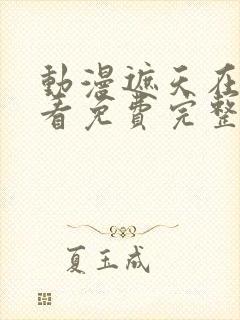 動漫遮天在
看免費完整
夏玉成